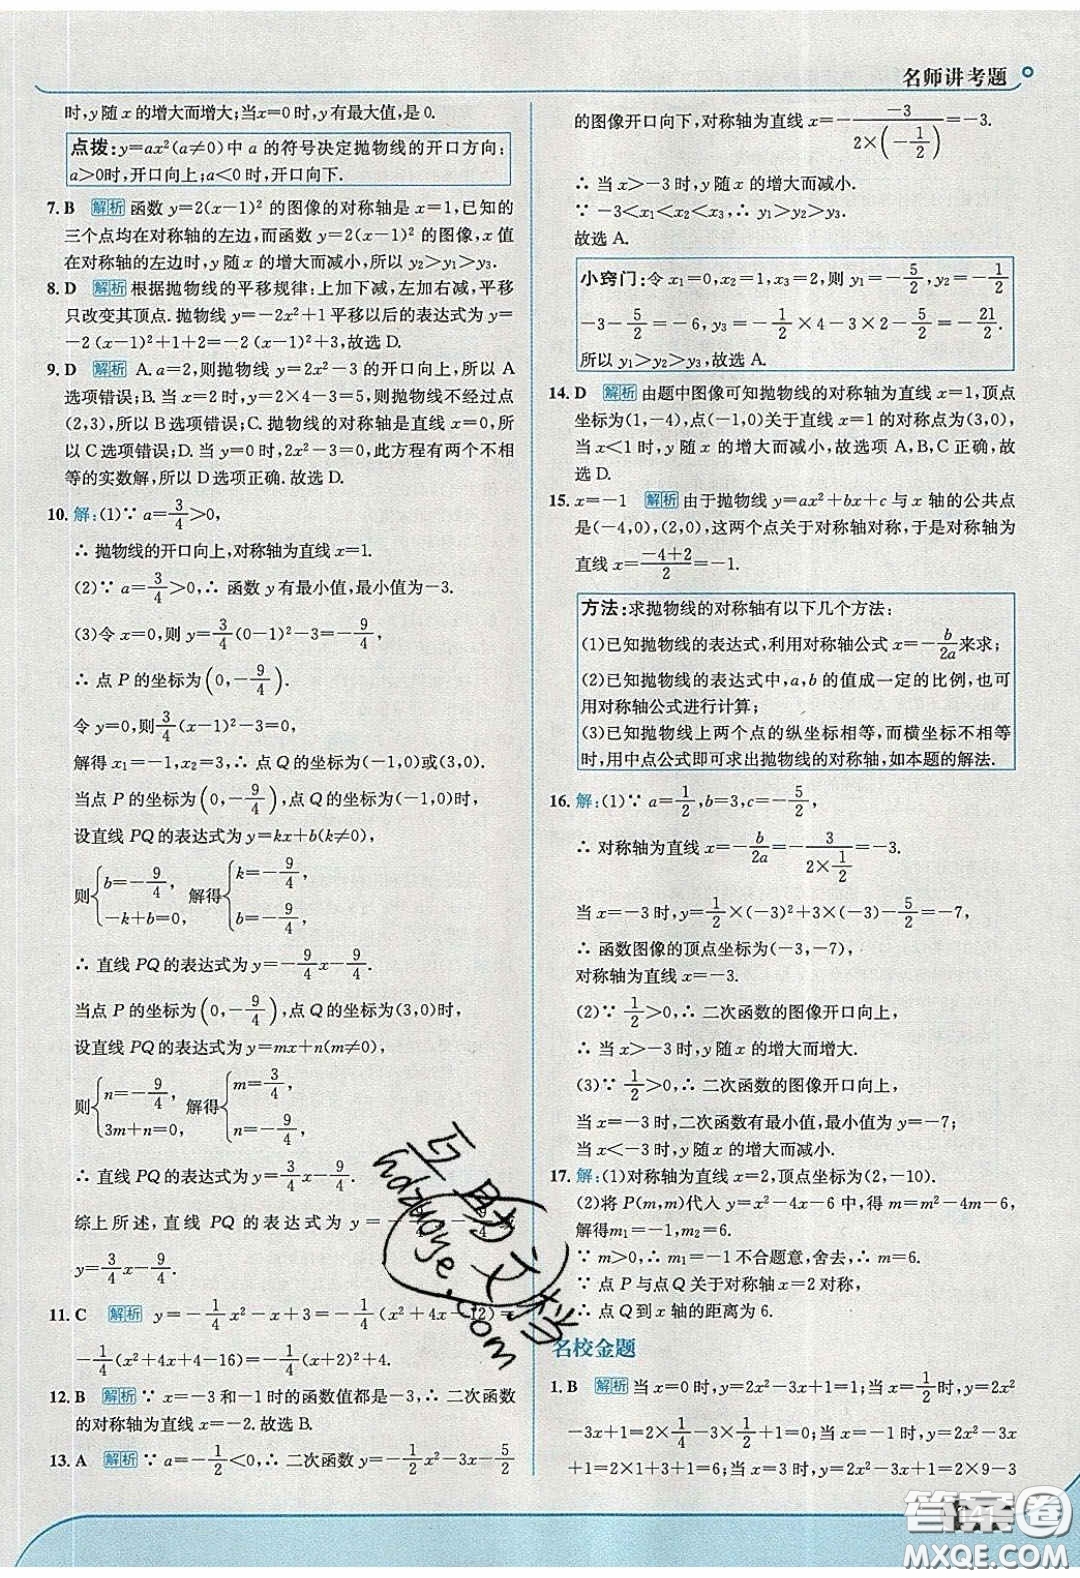 名师讲考题
时,y 随 x 的增大而增大;当x=0时,y有最大值,是0.
点拨:y=ax²(a≠0)中 a 的符号决定抛物线的开口方向:
a>0时,开口向上;a<0时,开口向下.
7. B 解析 函数 y=2(x-1)² 的图像的对称轴是 x=1,已知的
三个点均在对称轴的左边,而函数 y=2(x-1)² 的图像,x 值
在对称轴的左边时,y 随 x 的增大而减小,所以 y₂>y₁>y₃.
8. D 解析 根据抛物线的平移规律:上加下减,左加右减,平移
只改变其顶点. 抛物线 y=-2x²+1 平移以后的表达式为 y=
-2(x-1)²+1+2=-2(x-1)²+3. 故选 D.
9. D 解析 A. a=2,则抛物线 y=2x²-3 的开口向上,所以 A
选项错误;B. 当 x=2 时,y=2×4-3=5,则抛物线不经过点
(2,3),所以 B 选项错误;C. 抛物线的对称轴是直线 x=0,所
以 C 选项错误;D. 当 y=0 时,2x²-3=0,此方程有两个不相
等的实数解,所以 D 选项正确. 故选 D.
10. 解:(1)∵ a=3/4>0,
∴ 抛物线的开口向上,对称轴为直线 x=1.
(2)∵ a=3/4>0,∴ 函数 y 有最小值,最小值为-3.
(3)令 x=0,则 y=3/4(0-1)²-3=-9/4,
∴ 点 P 的坐标为(0,-9/4).
令 y=0,则3/4(x-1)²-3=0,
解得 x₁=-1,x₂=3,∴ 点 Q 的坐标为(-1,0)或(3,0).
当点 P 的坐标为(0,-9/4),点 Q 的坐标为(-1,0)时,
设直线 PQ 的表达式为 y=kx+b(k≠0),
则{b=-9/4, -k+b=0, 解得{k=-9/4, b=-9/4,
∴ 直线 PQ 的表达式为 y=-9/4x-9/4.
当点 P 的坐标为(0,-9/4),点 Q 的坐标为(3,0)时,
设直线 PQ 的表达式为 y=mx+n(m≠0),
则{n=-9/4, 3m+n=0, 解得{m=3/4, n=-9/4,
∴ 直线 PQ 的表达式为 y=3/4x-9/4.
综上所述,直线 PQ 的表达式为 y=
y=3/4x-9/4.
11. C 解析 y=-1/4x²-x+3=-1/4(x²+4x-12)=
-1/4(x²+4x+4-16)=-1/4(x+2)²+4.
12. B 解析 ∵ x=-3 和-1 时的函数值都是-3,∴ 二次函数
的对称轴为直线 x=-2. 故选 B.
13. A 解析 ∵ a=-1/2<0,∴ 二次函数 y=-1/2x²-3x-5/2
的图像开口向下,对称轴为直线 x=-(-3)/(2×(-1/2))=-3.
∴ 当 x>-3 时,y 随 x 的增大而减小.
∵ -3<x₁<x₂<x₃,∴ y₁>y₂>y₃.
故选 A.
小窍门:令 x₁=0,x₂=1,x₃=2,则 y₁=-5/2,y₂=-1/2
-3-5/2=-6,y₃=-1/2×4-3×2-5/2=-21/2.
所以 y₁>y₂>y₃. 故选 A.
14. D 解析 由题中图像可知抛物线的对称轴为直线 x=1,顶点
坐标为(1,-4),点(-1,0)关于直线 x=1 的对称点为(3,0),
当 x<1 时,y 随 x 的增大而减小,故选项 A,B,C 正确,故
选 D.
15. x=-1 解析 由于抛物线 y=ax²+bx+c 与 x 轴的公共点
是(-4,0),(2,0),这两个点关于对称轴对称,于是对称轴为
直线 x=(-4+2)/2=-1.
方法:求抛物线的对称轴有以下几个方法:
(1)已知抛物线的表达式,利用对称轴公式 x=-b/2a来求;
(2)已知抛物线的表达式中,a,b 的值成一定的比例,也可
用对称轴公式进行计算;
(3)已知抛物线上两个点的纵坐标相等,而横坐标不相等
时,用中点公式即可求出抛物线的对称轴,如本题的解法.
16. 解:(1)∵ a=1/2,b=3,c=-5/2,
∴ 对称轴为直线 x=-b/2a=-3/(2×1/2)=-3.
当 x=-3 时,y=1/2×(-3)²+3×(-3)-5/2=-7,
∴ 函数图像的顶点坐标为(-3,-7),
对称轴为直线 x=-3.
(2)∵ 1/2>0,∴ 二次函数的图像开口向上,
∴ 当 x>-3 时,y 随 x 的增大而增大.
(3)∵ 1/2>0,∴ 二次函数的图像开口向上,
当 x=-3 时,二次函数有最小值,最小值为 y=-7;
当 x<-3 时,y 随 x 的增大而减小.
17. 解:(1)对称轴为直线 x=2,顶点坐标为(2,-10).
(2)将 P(m,m)代入 y=x²-4x-6 中,得 m=m²-4m-6,
解得m₁=-1,m₂=6.
∵ m>0,∴ m₁=-1 不合题意,舍去,∴ m=6.
∵ 点 P 与点 Q 关于对称轴 x=2 对称,
∴ 点 Q 到 x 轴的距离为 6.
名校金题
1. B 解析 当 x=0 时,y=2x²-3x+1=1;当 x=1/2时,y=2x²
-3x+1=2×1/4-3×1/2+1=0;当 x=-1 时,y=2x²-3x
+1=2×1+3+1=6;当 x=3 时,y=2x²-3x+1=2×9-3
互助文档
hdzuoye.com
答案卷
MXQE.COM